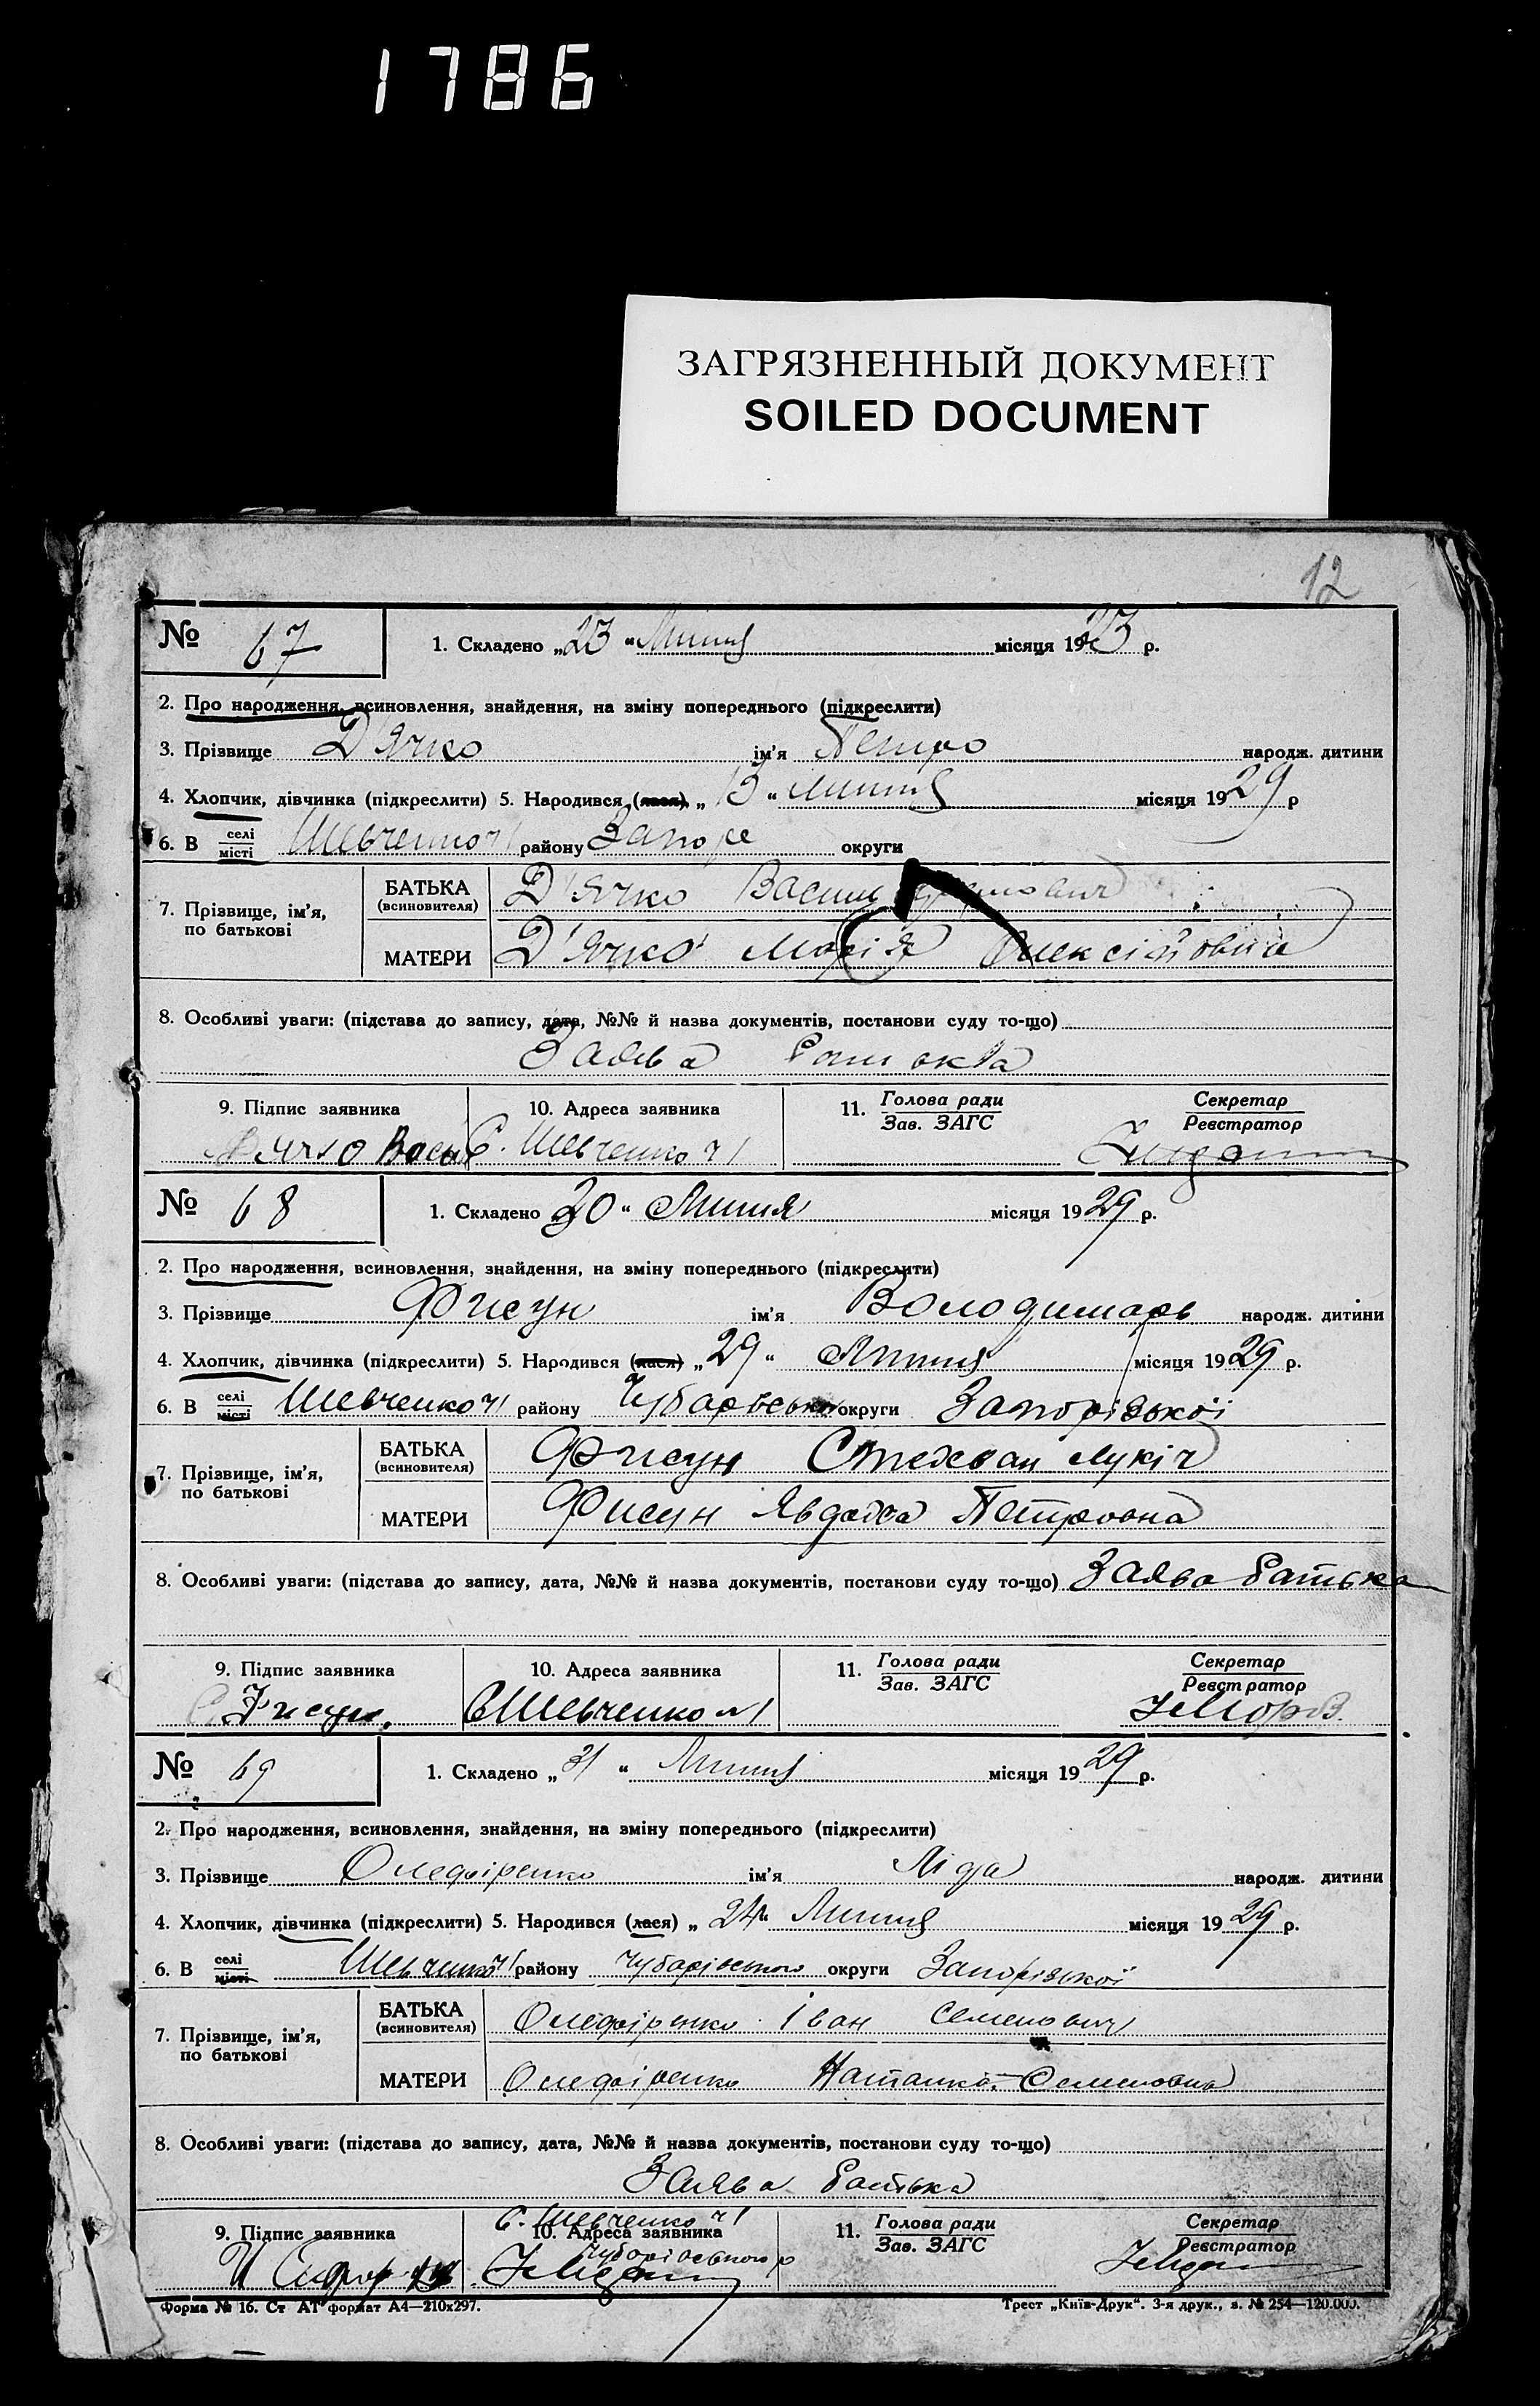 1786
ЗАГРЯЗНЕННЫЙ ДОКУМЕНТ
SOILED DOCUMENT
12
№ 67 1. Складено „23 “ Липня місяця 1923 р.
2. Про народження, всиновлення, знайдення, на зміну попереднього (підкреслити)
3. Прізвище Д'ячко ім'я Петро народж. дитини
4. Хлопчик, дівчинка (підкреслити) 5. Народився (лася) „ 13 “ Липня місяця 1929 р
6. В селі місті Шевченко ч1 району Запорє округи
7. Прізвище, ім'я, по батькові
БАТЬКА (всиновителя) Д'ячко Василь
МАТЕРИ Д'ячко Марія Олексіївна
8. Особливі уваги: (підстава до запису, дата, №№ й назва документів, постанови суду то-що)
Заява батька
9. Підпис заявника 10. Адреса заявника 11. Голова ради Зав. ЗАГС Секретар Реєстратор
Дячко Васи С. Шевченко ч1
№ 68 1. Складено 30 “ Липня місяця 1929 р.
2. Про народження, всиновлення, знайдення, на зміну попереднього (підкреслити)
3. Прізвище Фисун ім'я Володимарь народж. дитини
4. Хлопчик, дівчинка (підкреслити) 5. Народився (лася) „29 “ Липня місяця 1929 р.
6. В селі місті Шевченко ч1 району Чубарівсько округи Запорізької
7. Прізвище, ім'я, по батькові
БАТЬКА (всиновителя) Фисун Стехван Лукіч
МАТЕРИ Фисун Явдоха Петровна
8. Особливі уваги: (підстава до запису, дата, №№ й назва документів, постанови суду то-що) Заява батька
9. Підпис заявника 10. Адреса заявника 11. Голова ради Зав. ЗАГС Секретар Реєстратор
С Фисун. С Шевченко ч1
№ 69 1. Складено „ 31 “ Липня місяця 1929 р.
2. Про народження, всиновлення, знайдення, на зміну попереднього (підкреслити)
3. Прізвище Олефіренко ім'я Ліда народж. дитини
4. Хлопчик, дівчинка (підкреслити) 5. Народився (лася) „ 24 “ Липня місяця 1929 р.
6. В селі місті Шевченко ч1 району Чубарівського округи Запорізької
7. Прізвище, ім'я, по батькові
БАТЬКА (всиновителя) Олефіренко Іван Семенович
МАТЕРИ Олефіренко Наталка Семеновна
8. Особливі уваги: (підстава до запису, дата, №№ й назва документів, постанови суду то-що)
Заява батька
С. Шевченко ч1
9. Підпис заявника 10. Адреса заявника 11. Голова ради Зав. ЗАГС Секретар Реєстратор
Чубарівського р
Форма № 16. Ст АТ формат А4—210х297. Трест „Київ-Друк“. 3-я друк., з. № 254—120.000.